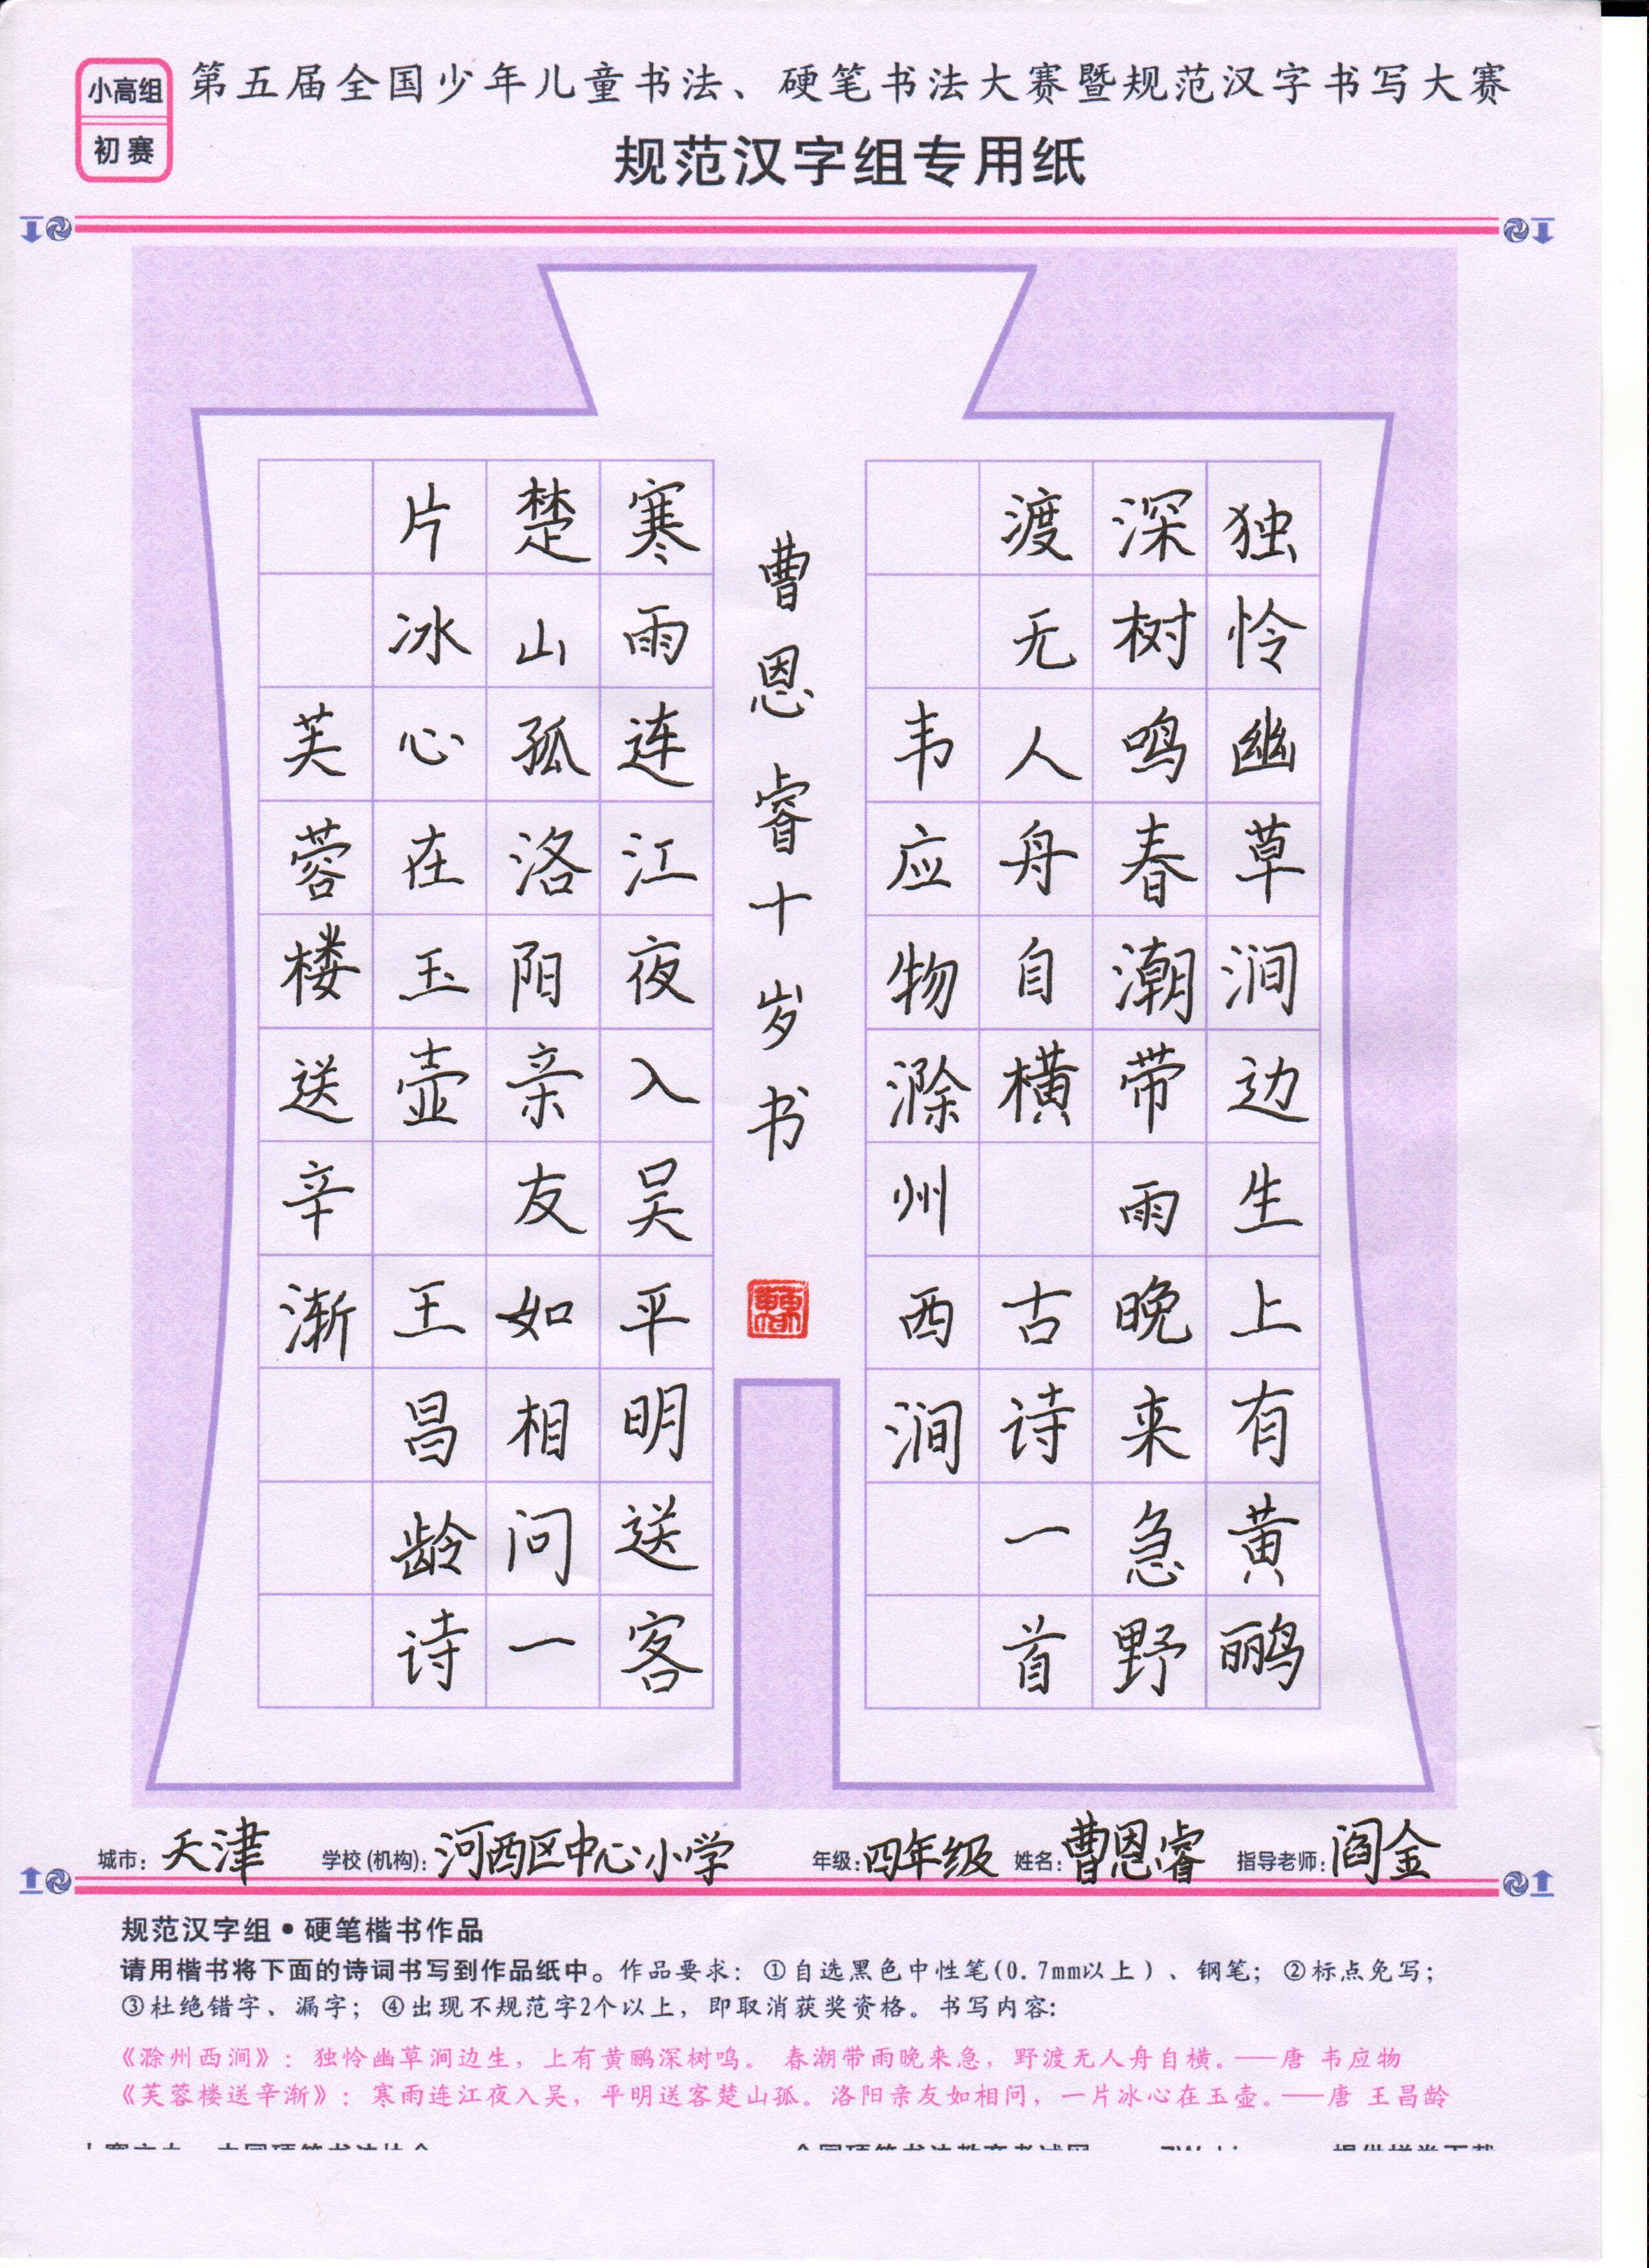 小高组
初赛
第五届全国少年儿童书法、硬笔书法大赛暨规范汉字书写大赛
规范汉字组专用纸
独怜幽草涧边生上有黄鹂
深树鸣春潮带雨晚来急野
渡无人舟自横 古诗一首
韦应物滁州西涧
曹恩睿十岁书
寒雨连江夜入吴平明送客
楚山孤洛阳亲友如相问一
片冰心在玉壶 王昌龄诗
芙蓉楼送辛渐
城市：天津 学校(机构)：河西区中心小学 年级：四年级 姓名：曹恩睿 指导老师：阎金
规范汉字组•硬笔楷书作品
请用楷书将下面的诗词书写到作品纸中。作品要求：①自选黑色中性笔(0.7mm以上)、钢笔；②标点免写；
③杜绝错字、漏字；④出现不规范字2个以上，即取消获奖资格。书写内容：
《滁州西涧》：独怜幽草涧边生，上有黄鹂深树鸣。 春潮带雨晚来急，野渡无人舟自横。——唐 韦应物
《芙蓉楼送辛渐》：寒雨连江夜入吴，平明送客楚山孤。洛阳亲友如相问，一片冰心在玉壶。——唐 王昌龄